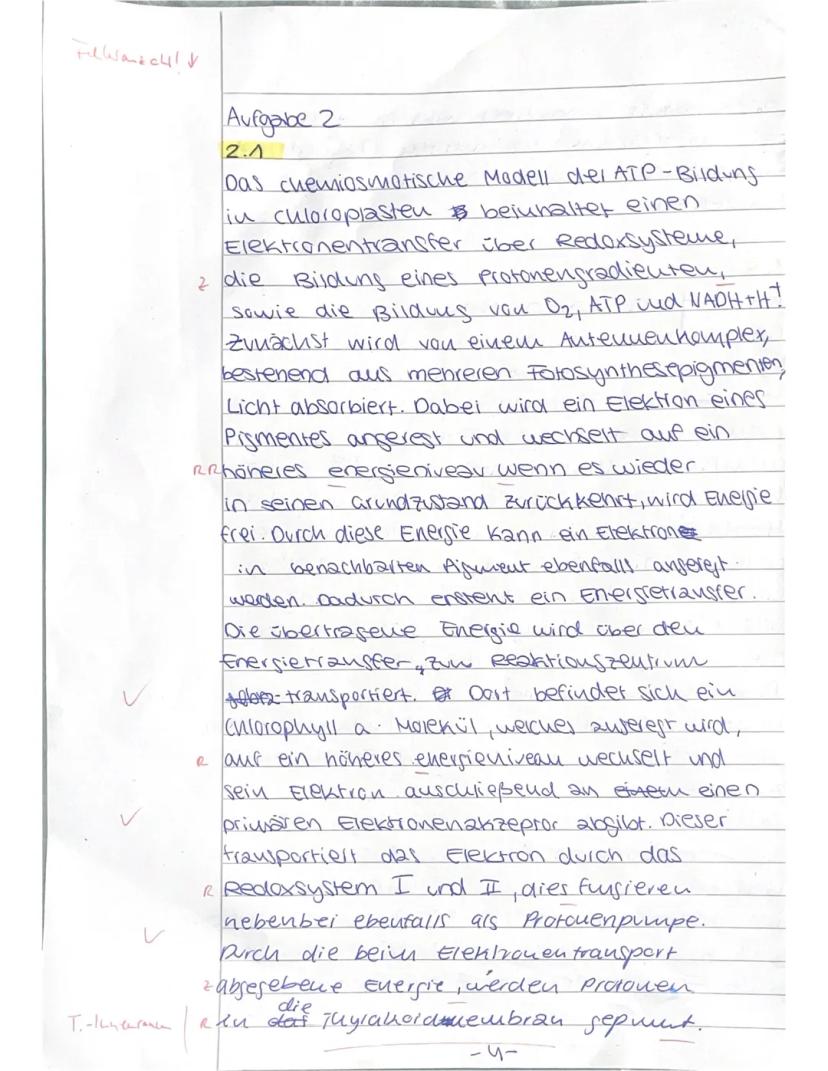 Aufgabe 2
2.1
Das chemiosmotische Modell der ATP-Bildung
in Chloroplasten beinhaltet einen
Elektronentransfer über Redoxsysteme,
z die Bildung eines Protonengradienten,
sowie die Bildung von O2, ATP und NADH+H+.
Zunächst wird von einem Antennenkomplex,
bestehend aus mehreren Fotosynthesepigmenten,
Licht absorbiert. Dabei wird ein Elektron eines
Pigmentes angeregt und wechselt auf ein
RR höheres energieniveau wenn es wieder
in seinen Grundzustand zurückkehrt, wird Energie
frei. Durch diese Energie kann ein Elektron
in benachbarten Pigment ebenfalls angeregt
werden. Dadurch ensteht ein Energietransfer.
Die übertragene Energie wird über den
Energietransfer, zum Reaktionszentrum
transportiert. Dort befindet sich ein
Chlorophyll a - Molekül, welches angeregt wird,
R auf ein höheres energieniveau wechselt und
sein Elektron anschließend an einen
primären Elektronenakzeptor abgibt. Dieser
transportiert das Elektron durch das
R Redoxsystem I und II, dies fungieren
nebenbei ebenfalls als Protonenpumpe.
Durch die beim Elektronentransport
z abgegebene Energie, werden Protonen
T.-Innenraum R in die Thylakoidmembran gepumt.
-4-